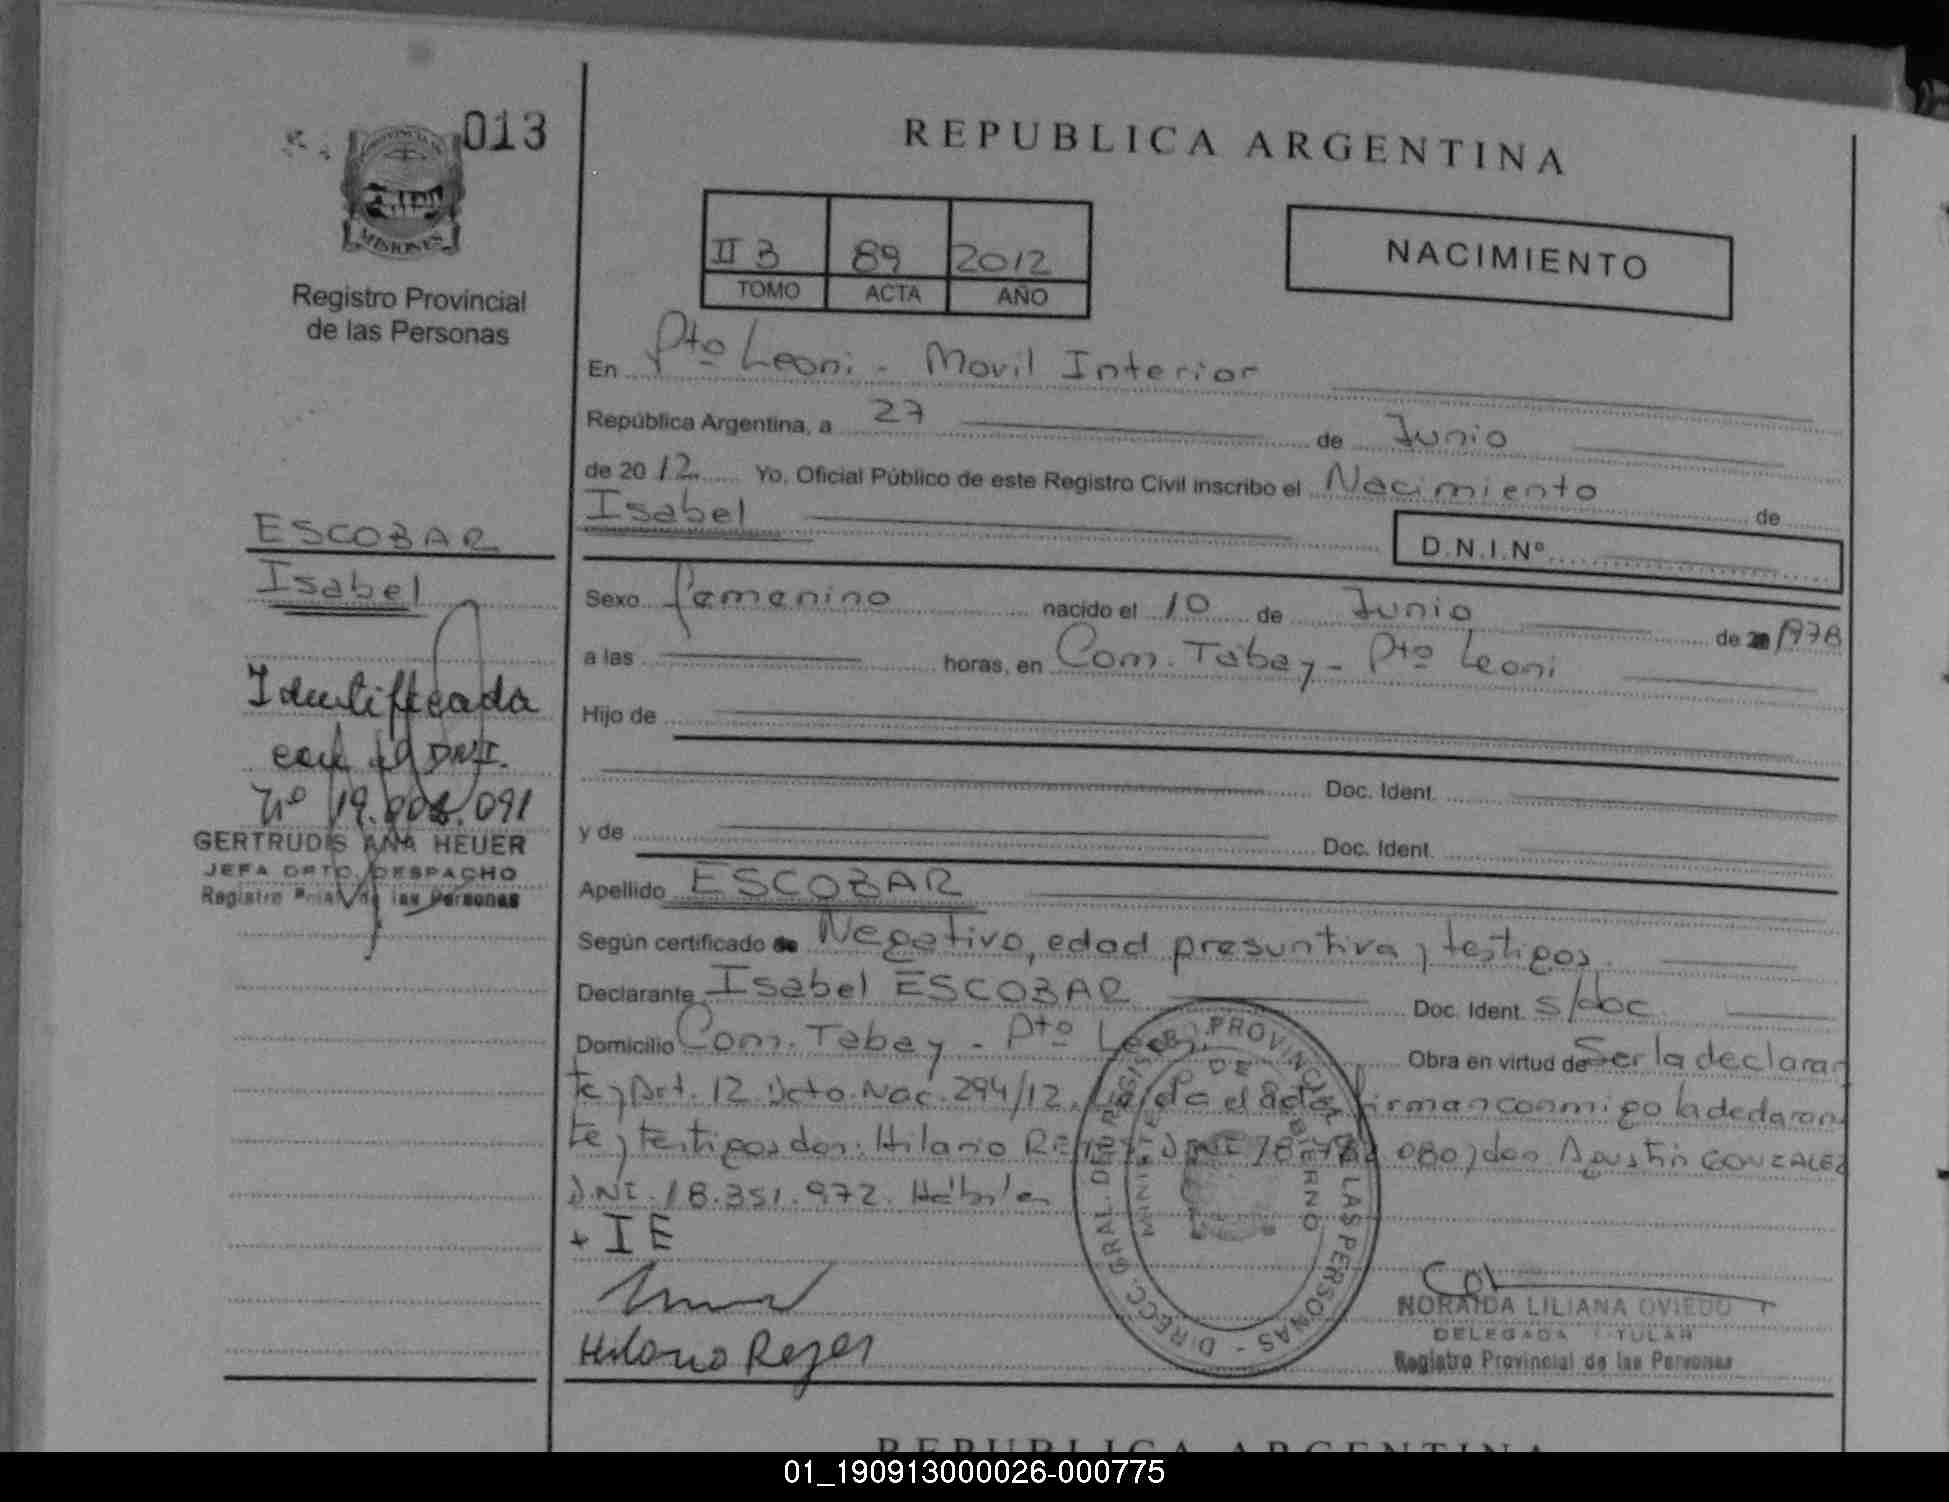 013
PROVINCIA DE
MISIONES
Registro Provincial
de las Personas
ESCOBAR
Isabel
Identificada
con el DNI.
Nº 19.008.091
GERTRUDIS ANA HEUER
JEFA DPTO. DESPACHO
Registro Prial de las Personas
REPUBLICA ARGENTINA
II 3 89 2012
TOMO ACTA AÑO
NACIMIENTO
En Pto Leoni - Movil Interior
República Argentina, a 27 de Junio
de 2012 Yo, Oficial Público de este Registro Civil inscribo el Nacimiento de
Isabel
D.N.I.Nº
Sexo femenino nacido el 10 de Junio de 1978
a las horas, en Com. Tabay - Pto Leoni
Hijo de
Doc. Ident.
y de Doc. Ident.
Apellido ESCOBAR
Según certificado de Negativo, edad presuntiva y testigos.
Declarante Isabel ESCOBAR Doc. Ident. s/doc
Domicilio Com. Tabay - Pto Leoni Obra en virtud de Ser la declaran
te y Art. 12 Dcto. Nac. 294/12. Leída el acta firman conmigo la declaran
te y testigos don: Hilario Reyes DNI 18. 080 y don Agustín GONZALEZ
D.N.I. 18.351.972. Hábiles
+ IE
Hilario Reyes
DIRECC. GRAL. DEL REGISTRO PROVINCIAL DE LAS PERSONAS -
MINISTERIO DE GOBIERNO
NORAIDA LILIANA OVIEDO
DELEGADA TITULAR
Registro Provincial de las Personas
REPUBLICA ARGENTINA
01_190913000026-000775